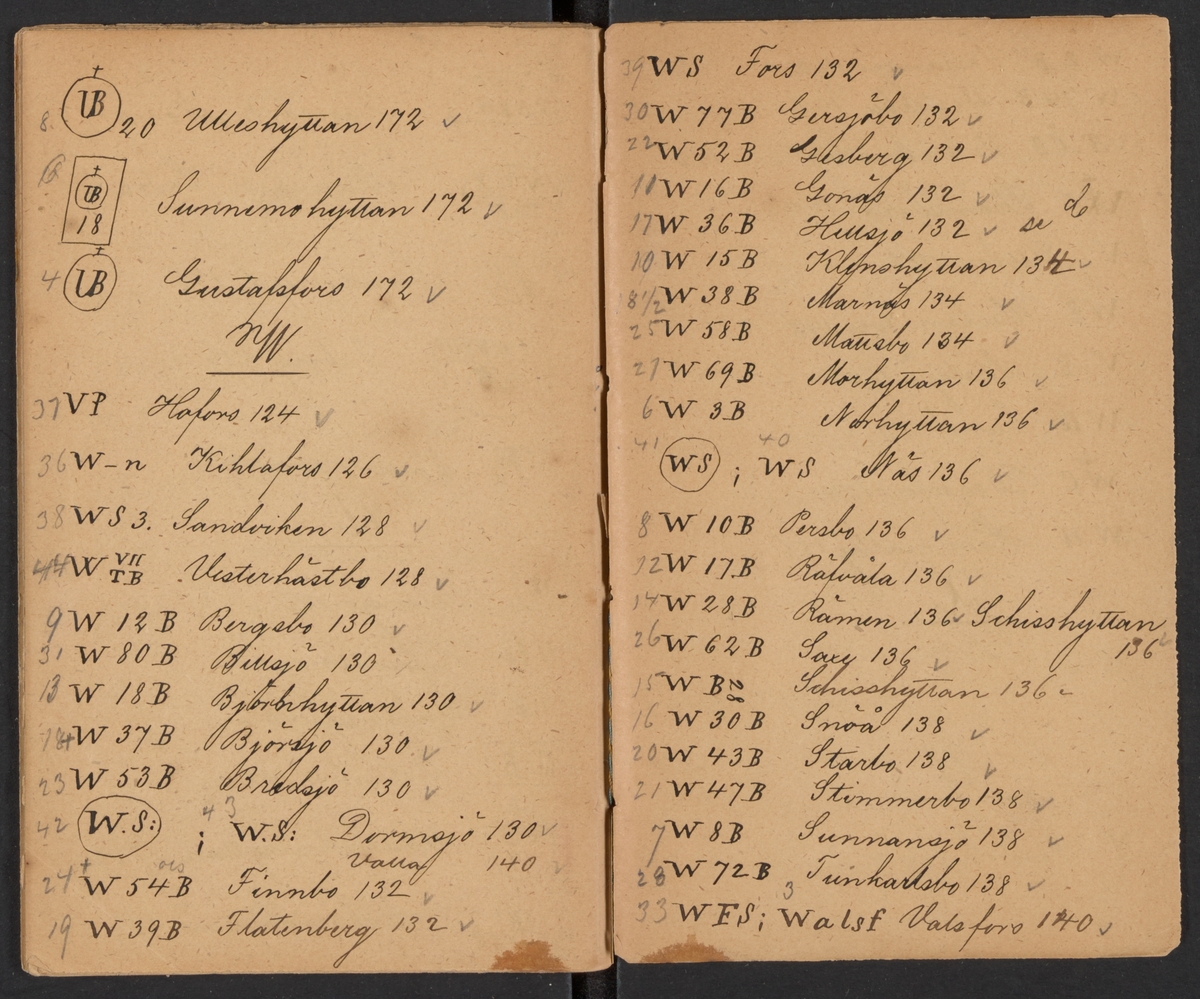 8. UB 20 Ulleshyttan 172 ✓
6 UB 18 Sunnemohyttan 172 ✓
4 UB Gustafsfors 172 ✓
W.
37 VP Hofors 124 ✓
36 W-n Kihlafors 126 ✓
38 WS 3. Sandviken 128 ✓
44 W VII TB Vesterhästbo 128 ✓
9 W 12 B Bergsbo 130 ✓
31 W 80 B Billsjö 130
13 W 18 B Björbohyttan 130 ✓
18 W 37 B Björsjö 130 ✓
23 W 53 B Bredsjö 130 ✓
42 W.S: ; 43 W.S: Dormsjö 130 ✓
Valla 140
24 W 54 B Finnbo 132 ✓
19 W 39 B Flatenberg 132 ✓
39 WS Fors 132 ✓
30 W 77 B Gersjöbo 132 ✓
22 W 52 B Gesberg 132 ✓
11 W 16 B Gonäs 132 ✓
17 W 36 B Hellsjö 132 ✓
10 W 15 B Klenshyttan 134 ✓
8 1/2 W 38 B Marnäs 134 ✓
25 W 58 B Mattsbo 134 ✓
27 W 69 B Morhyttan 136 ✓
6 W 3 B Norhyttan 136 ✓
41 WS ; 40 WS Näs 136 ✓
8 W 10 B Persbo 136 ✓
12 W 17 B Räfvåla 136 ✓
14 W 28 B Rämen 136 ✓ Schisshyttan
136 ✓
26 W 62 B Saxe 136 ✓
15 W B 28 Schisshyttan 136
16 W 30 B Snöå 138 ✓
20 W 43 B Starbo 138 ✓
21 W 47 B Stimmerbo 138 ✓
7 W 8 B Sunnansjö 138 ✓
28 W 72 B Tunkarlsbo 138 ✓
33 WFS; 3 Walsf Valsfors 140 ✓